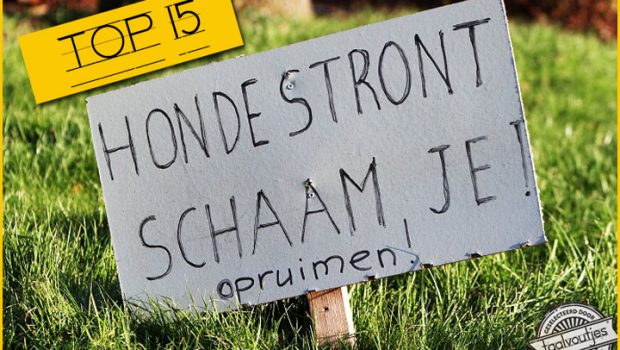 TOP 15
HONDESTRONT
SCHAAM JE!
opruimen!
GESELECTEERD DOOR
taalvoutjes